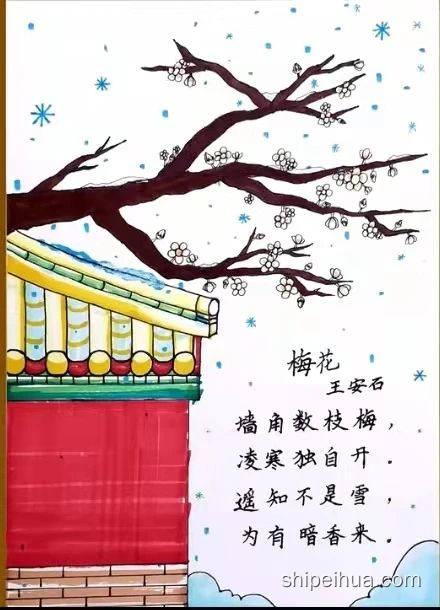 梅花
王安石
墙角数枝梅，
凌寒独自开．
遥知不是雪，
为有暗香来．
shipeihua.com